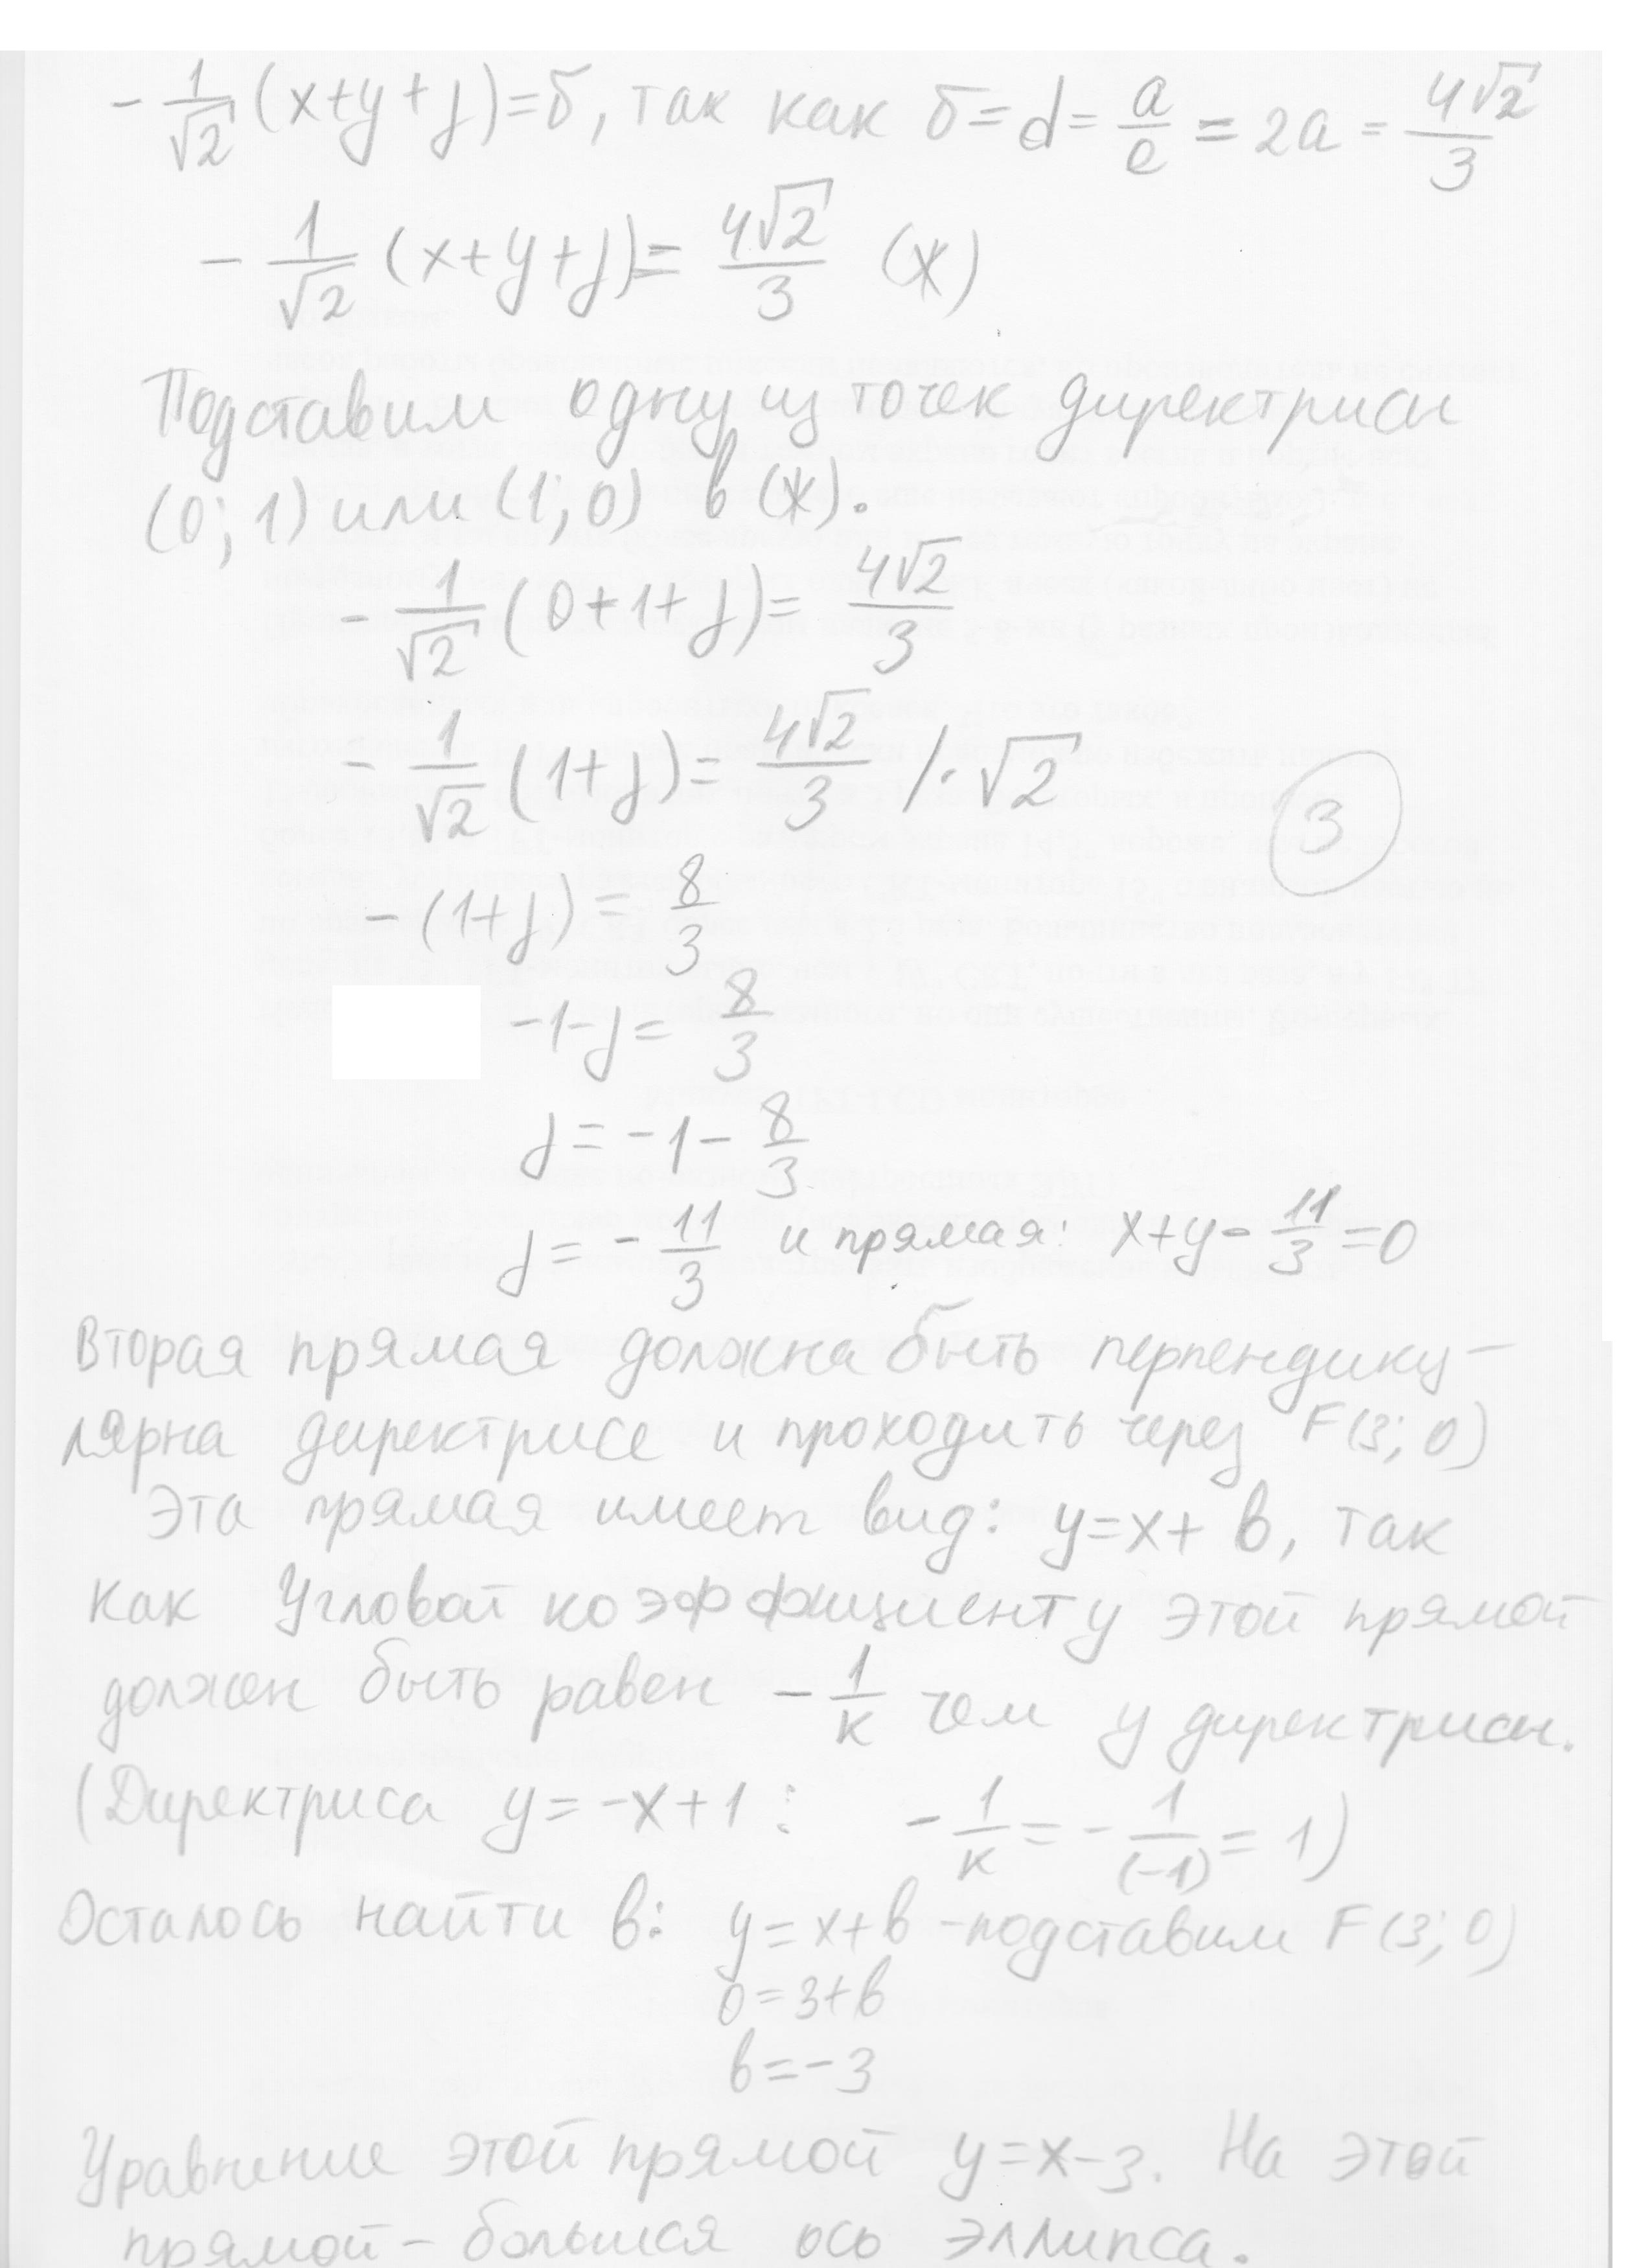 - 1/√2 (x+y+j)=б, так как б=d=a/e=2a=4√2/3
- 1/√2 (x+y+j)=4√2/3 (*)
Подставим одну из точек директрисы
(0; 1) или (1; 0) в (*).
- 1/√2 (0+1+j)=4√2/3
- 1/√2 (1+j)=4√2/3 /·√2
3
-(1+j)=8/3
-1-j=8/3
j=-1-8/3
j=-11/3 и прямая: x+y-11/3=0
Вторая прямая должна быть перпендику-
лярна директрисе и проходить через F(3; 0)
Эта прямая имеет вид: y=x+b, так
как угловой коэффициент у этой прямой
должен быть равен -1/к чем у директрисы.
(Директриса y=-x+1: -1/к=-1/(-1)=1)
Осталось найти b: y=x+b - подставим F(3; 0)
0=3+b
b=-3
Уравнение этой прямой y=x-3. На этой
прямой - большая ось эллипса.